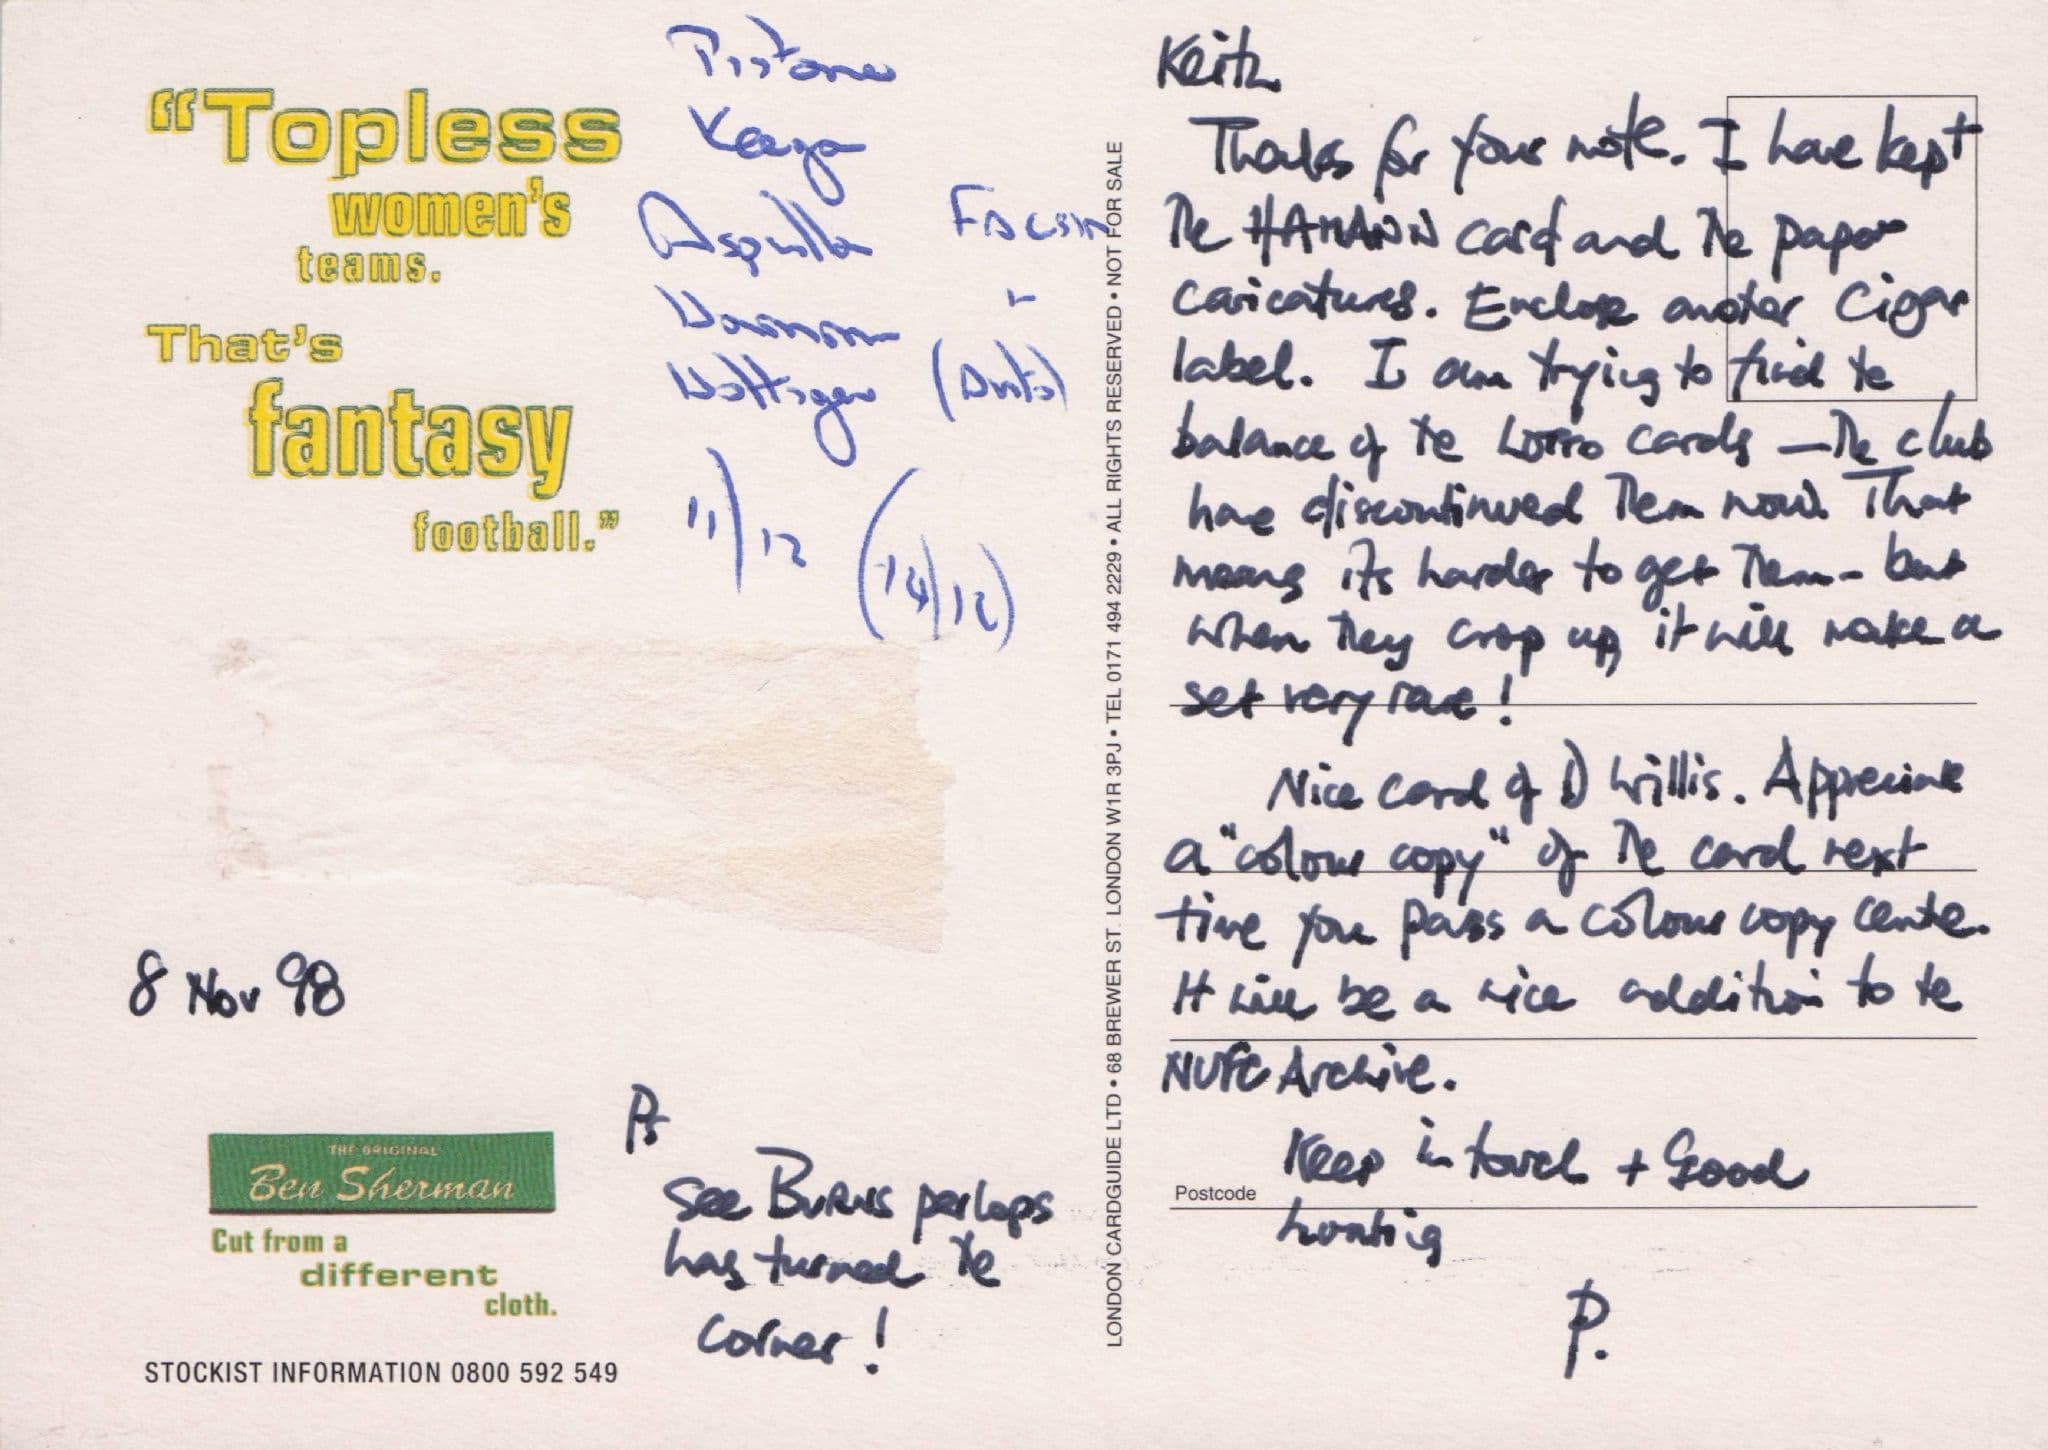 “Topless
women’s
teams.
That’s
fantasy
football.”
Asprilla
11/12 (14/12)
8 Nov 98
THE ORIGINAL
Ben Sherman
Cut from a
different
cloth.
STOCKIST INFORMATION 0800 592 549
Ps
See BURNS perhaps
has turned the
corner!
LONDON CARDGUIDE LTD • 68 BREWER ST. LONDON W1R 3PJ • TEL 0171 494 2229 • ALL RIGHTS RESERVED • NOT FOR SALE
Keith
Thanks for your note. I have kept
the HAMANN card and the paper
caricatures. Enclose another Cigar
label. I am trying to find the
balance of the LOTTO cards – the club
have discontinued them now. That
means its harder to get them - but
when they crop up, it will make a
set very rare!
Nice card of D Willis. Appreciate
a "colour copy" of the card next
time you pass a colour copy centre.
It will be a nice addition to the
NUFC Archive.
Keep in touch + Good
hunting
Postcode
P.